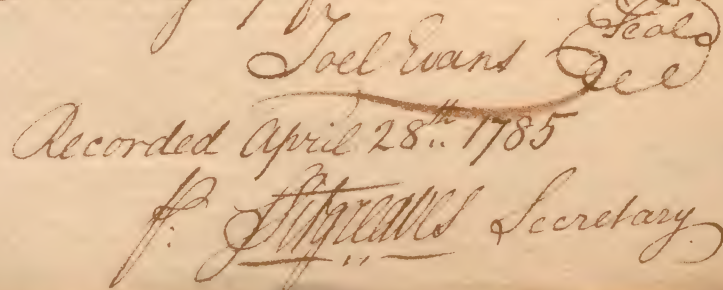 Joel Evans Seal
Recorded April 28th 1785
p. Sitgreaves Secretary